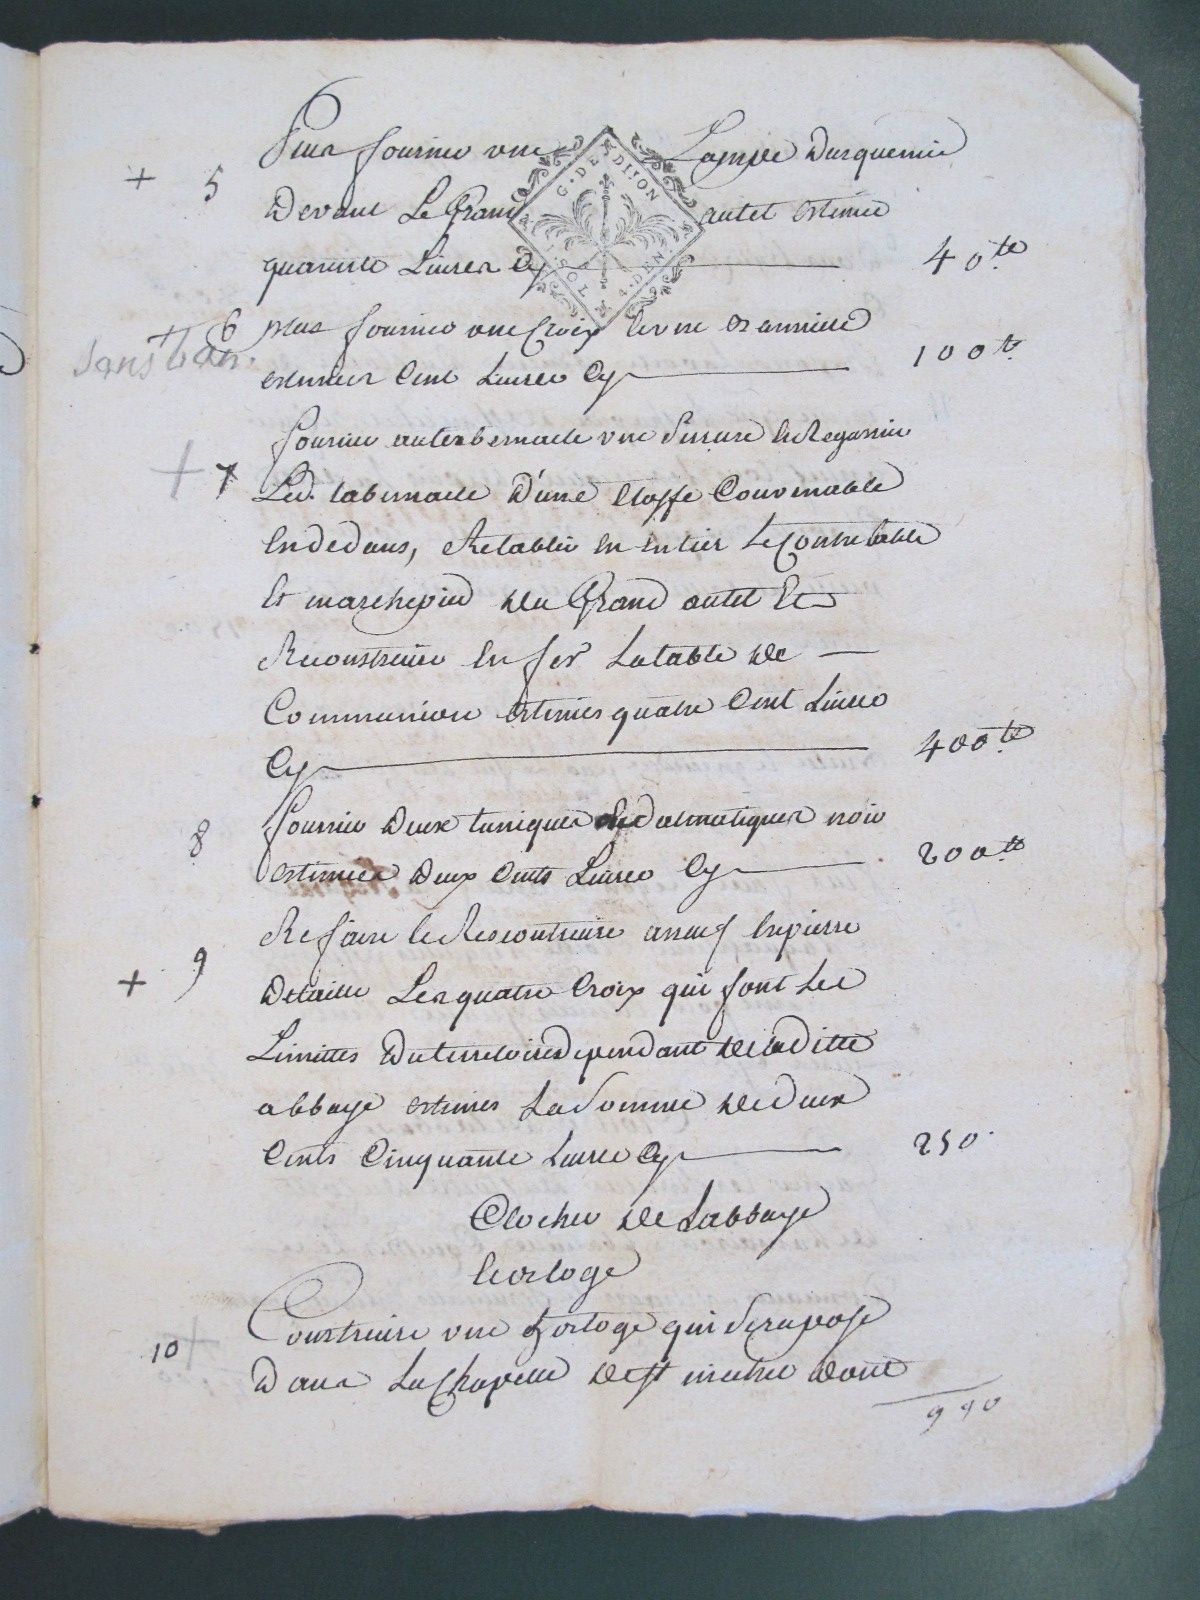 G. DE DIJON
1. SOL 4. DEN.
+ 5 Plus fournir une Lampe Darquemie
Devant Le Grand autel estimée
quarante Livres Cy 40 tt
+ 6 plus fournir une Croix
Sans ban.
estimées Cent Livres Cy 100 tt
fournir au tabernacle une Serrure En Regarnir
+ 7 Led. tabernacle D'une Etoffe Convenable
En dedans, Retablir En Entier Le Contretable
Et marchepied du Grand autel Et
Reconstruire En fer La table de
Communion Estimés quatre Cent Livres
Cy 400 tt
8 fournir deux tuniques dalmatiques noir
estimées deux Cents Livres Cy 200 tt
Refaire Et Reconstruire aneuf En pierre
+ 9 De taille Les quatre Croix qui font Les
Limittes du terretoire dependant de la ditte
abbaye estimés La Somme de deux
Cents Cinquante Livres Cy 250
Clocher de Labbaye
horloge
Construire une horloge qui Sera posé
10 + Dans La Chapelle de st michel dont
990